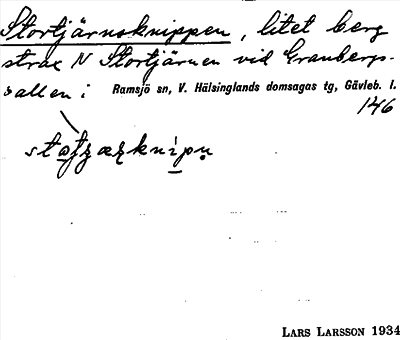 Stortjärnsknippen, litet berg
strax N Stortjärnen vid Granbergs-
vallen i Ramsjö sn, V. Hälsinglands domsagas tg, Gävleb. l.
146
LARS LARSSON 1934